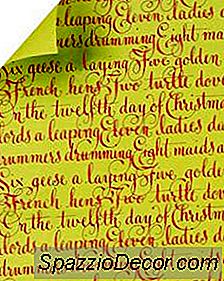 a leaping Eleven ladies da
mers drumming Eight maids a
Six geese a laying Five golden
French hens Two turtle dov
On the twelfth day of Christm
lords a leaping Eleven ladies da
drummers drumming Eight maids a
Six geese a laying Five gold
French hens Two turtle do
On the twelfth day of Christ
lords a leaping Eleven ladies d
drummers drumming Eight
www.SpazzioDecor.com